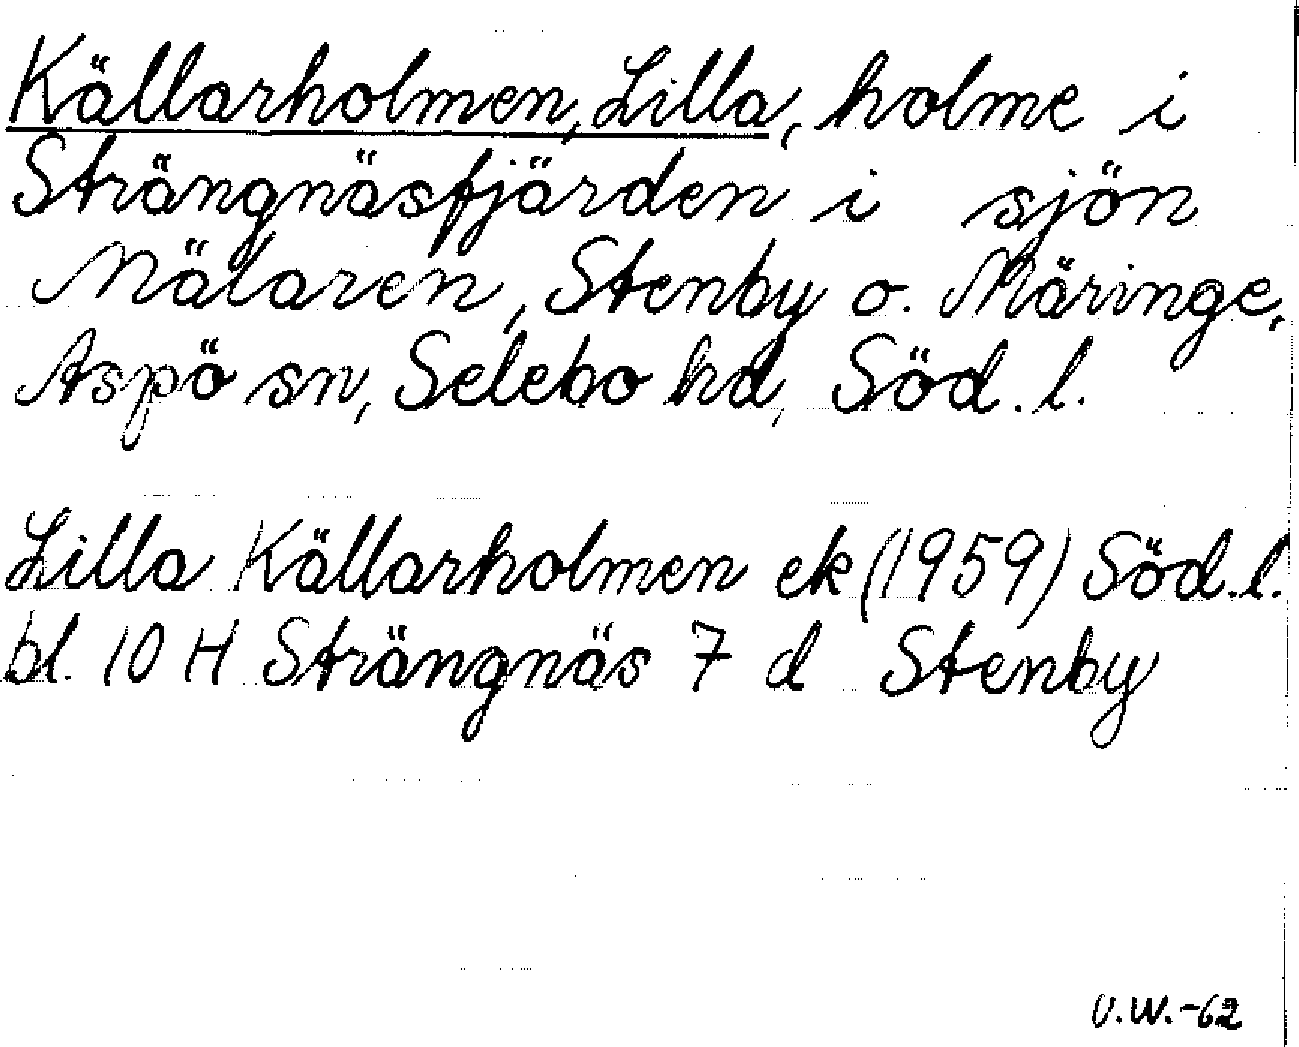 Källarholmen, Lilla, holme i
Strängnäsfjärden i sjön
Mälaren, Stenby o. Märinge,
Aspö sn, Selebo hd, Söd. l.
Lilla Källarholmen ek (1959) Söd. l.
bl. 10 H Strängnäs 7 d Stenby
U.W.-62